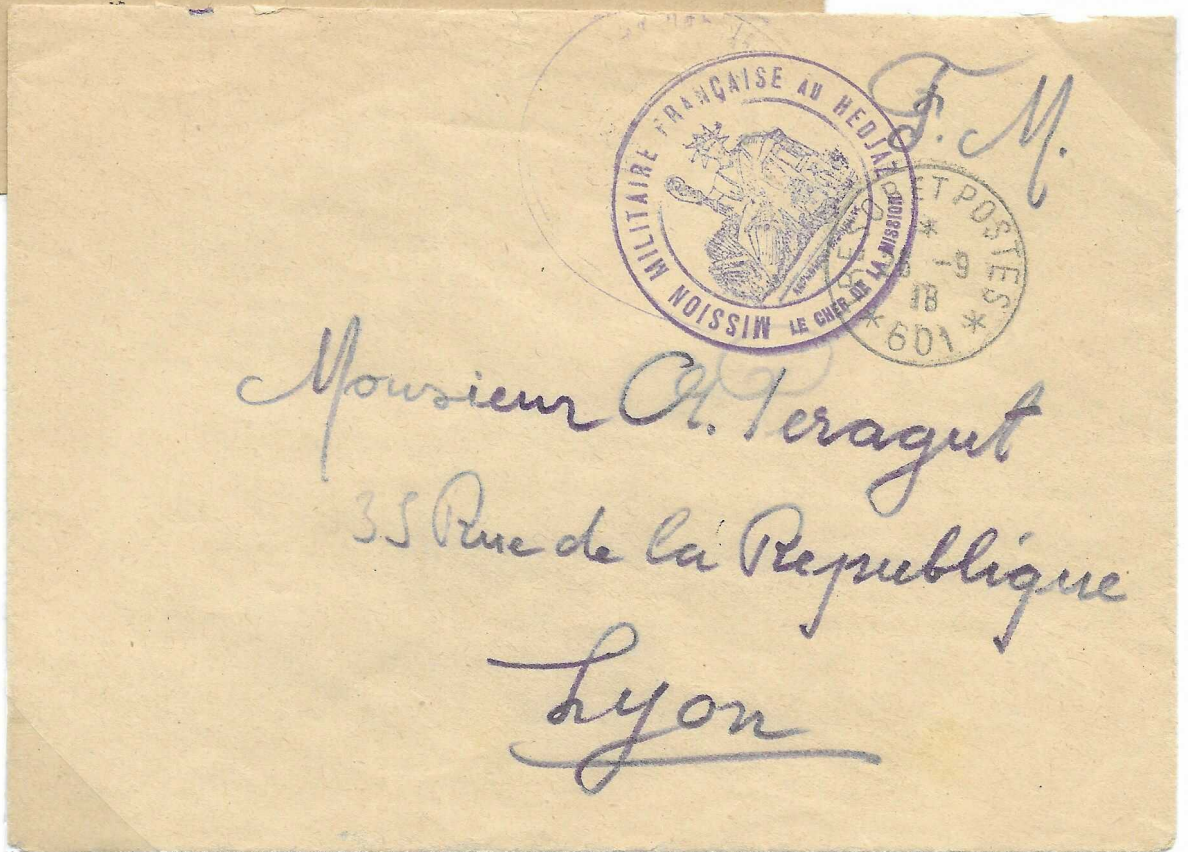 F. M.
MISSION MILITAIRE FRANÇAISE AU HEDJAZ
LE CHEF DE LA MISSION
ET POSTES
-9
18
* 601 *
Monsieur A. Peragut
35 Rue de la Republique
Lyon